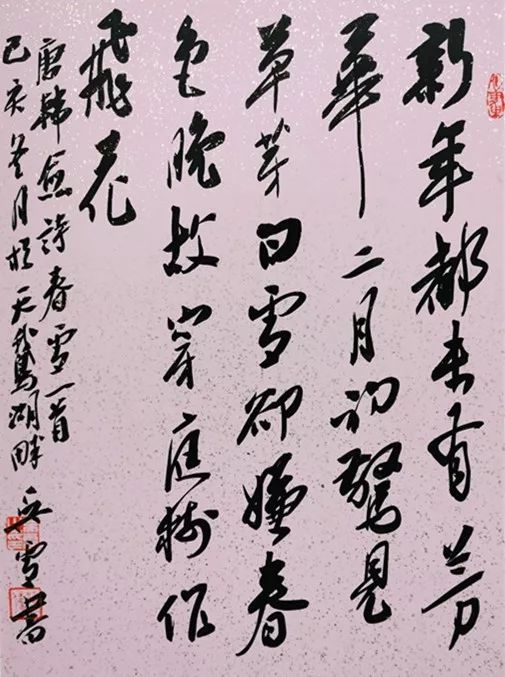 新年都未有芳
華二月初驚見
草芽白雪卻嫌春
色晚故穿庭樹作
飛花
唐韓愈詩春雪一首
己亥冬月於天鵝湖畔吳雪書